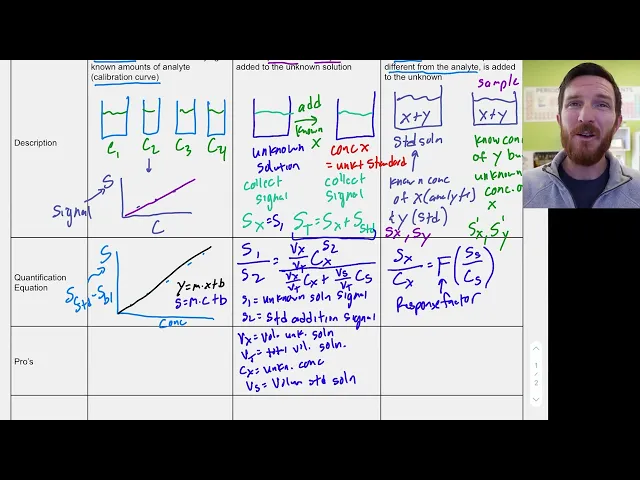 known amounts of analyte
(calibration curve)
added to the unknown solution
different from the analyte, is added
to the unknown
sample
Description
C1
C2
C3
C4
S
Signal
C
add
known
X
unknown
solution
collect
signal
Sx=S1
conc x
= unk + Standard
collect
signal
ST=Sx+Sstd
x+y
Std soln
known conc
of x (analyte)
& y (std)
Sx, Sy
x+y
know conc
of y bu
unknown
conc. o
x
S'x, S'y
Quantification
Equation
S
Sstd-Sbl
y=m·x+b
S=m·c+b
Conc
S1
S2
=
Vx/VT Cx
Vx/VT Cx + Vs/VT Cs
S2
S1 = unknown soln signal
S2 = Std addition signal
Sx/Cx = F(Ss/Cs)
Response factor
Pro's
Vx = Vol. unk. soln
VT = total vol. soln.
Cx = unkn. conc
Vs = Volum std soln
1
/
2